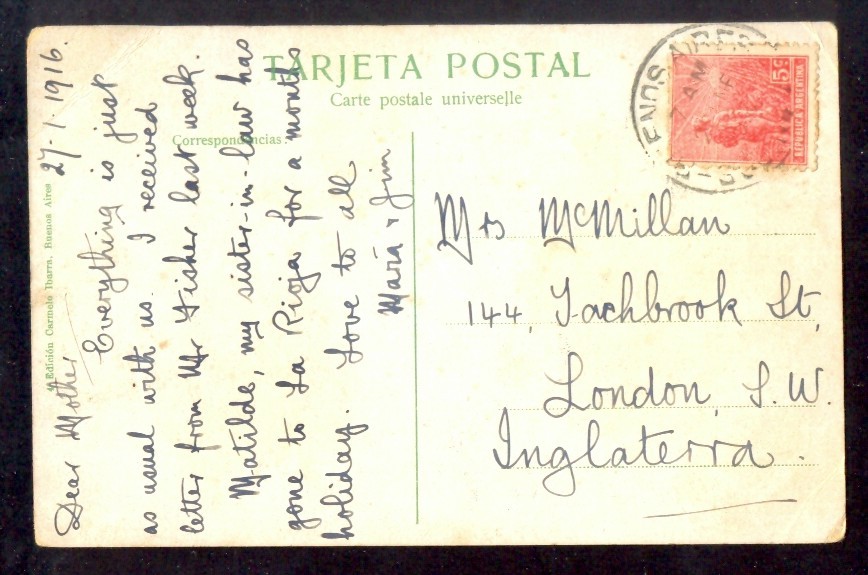 TARJETA POSTAL
Carte postale universelle
Correspondencias:
Edición Carmelo Ibarra, Buenos Aires
27-1-1916.
Dear Mother
Everything is just
as usual with us. I received
letter from Mr Fisher last week.
Matilde, my sister-in-law has
gone to La Rioja for a months
holiday. Love to all
Maria & Jim
Mrs McMillan
144, Tachbrook St,
London, S.W.
Inglaterra.
ENOS AIRES
7 AM
5c
REPUBLICA ARGENTINA